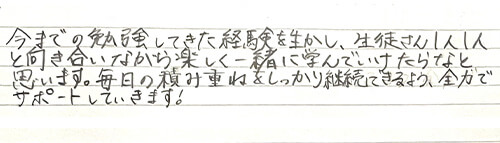 今までの勉強してきた経験を生かし、生徒さん1人1人
と向き合いながら楽しく一緒に学んでいけたらなと
思います。毎日の積み重ねをしっかり継続できるよう、全力で
サポートしていきます!